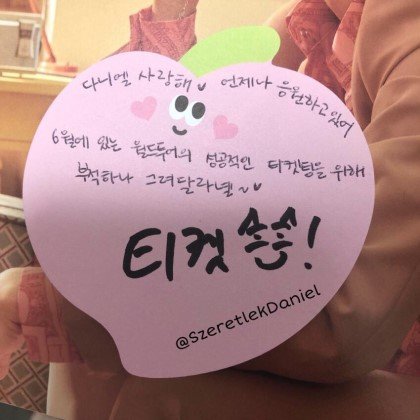 다니엘 사랑해 언제나 응원하고있어
6월에 있는 월드투어의 성공적인 티켓팅을 위해
부적하나 그려달라녤~
티켓 슝슝!
@SzeretlekDaniel